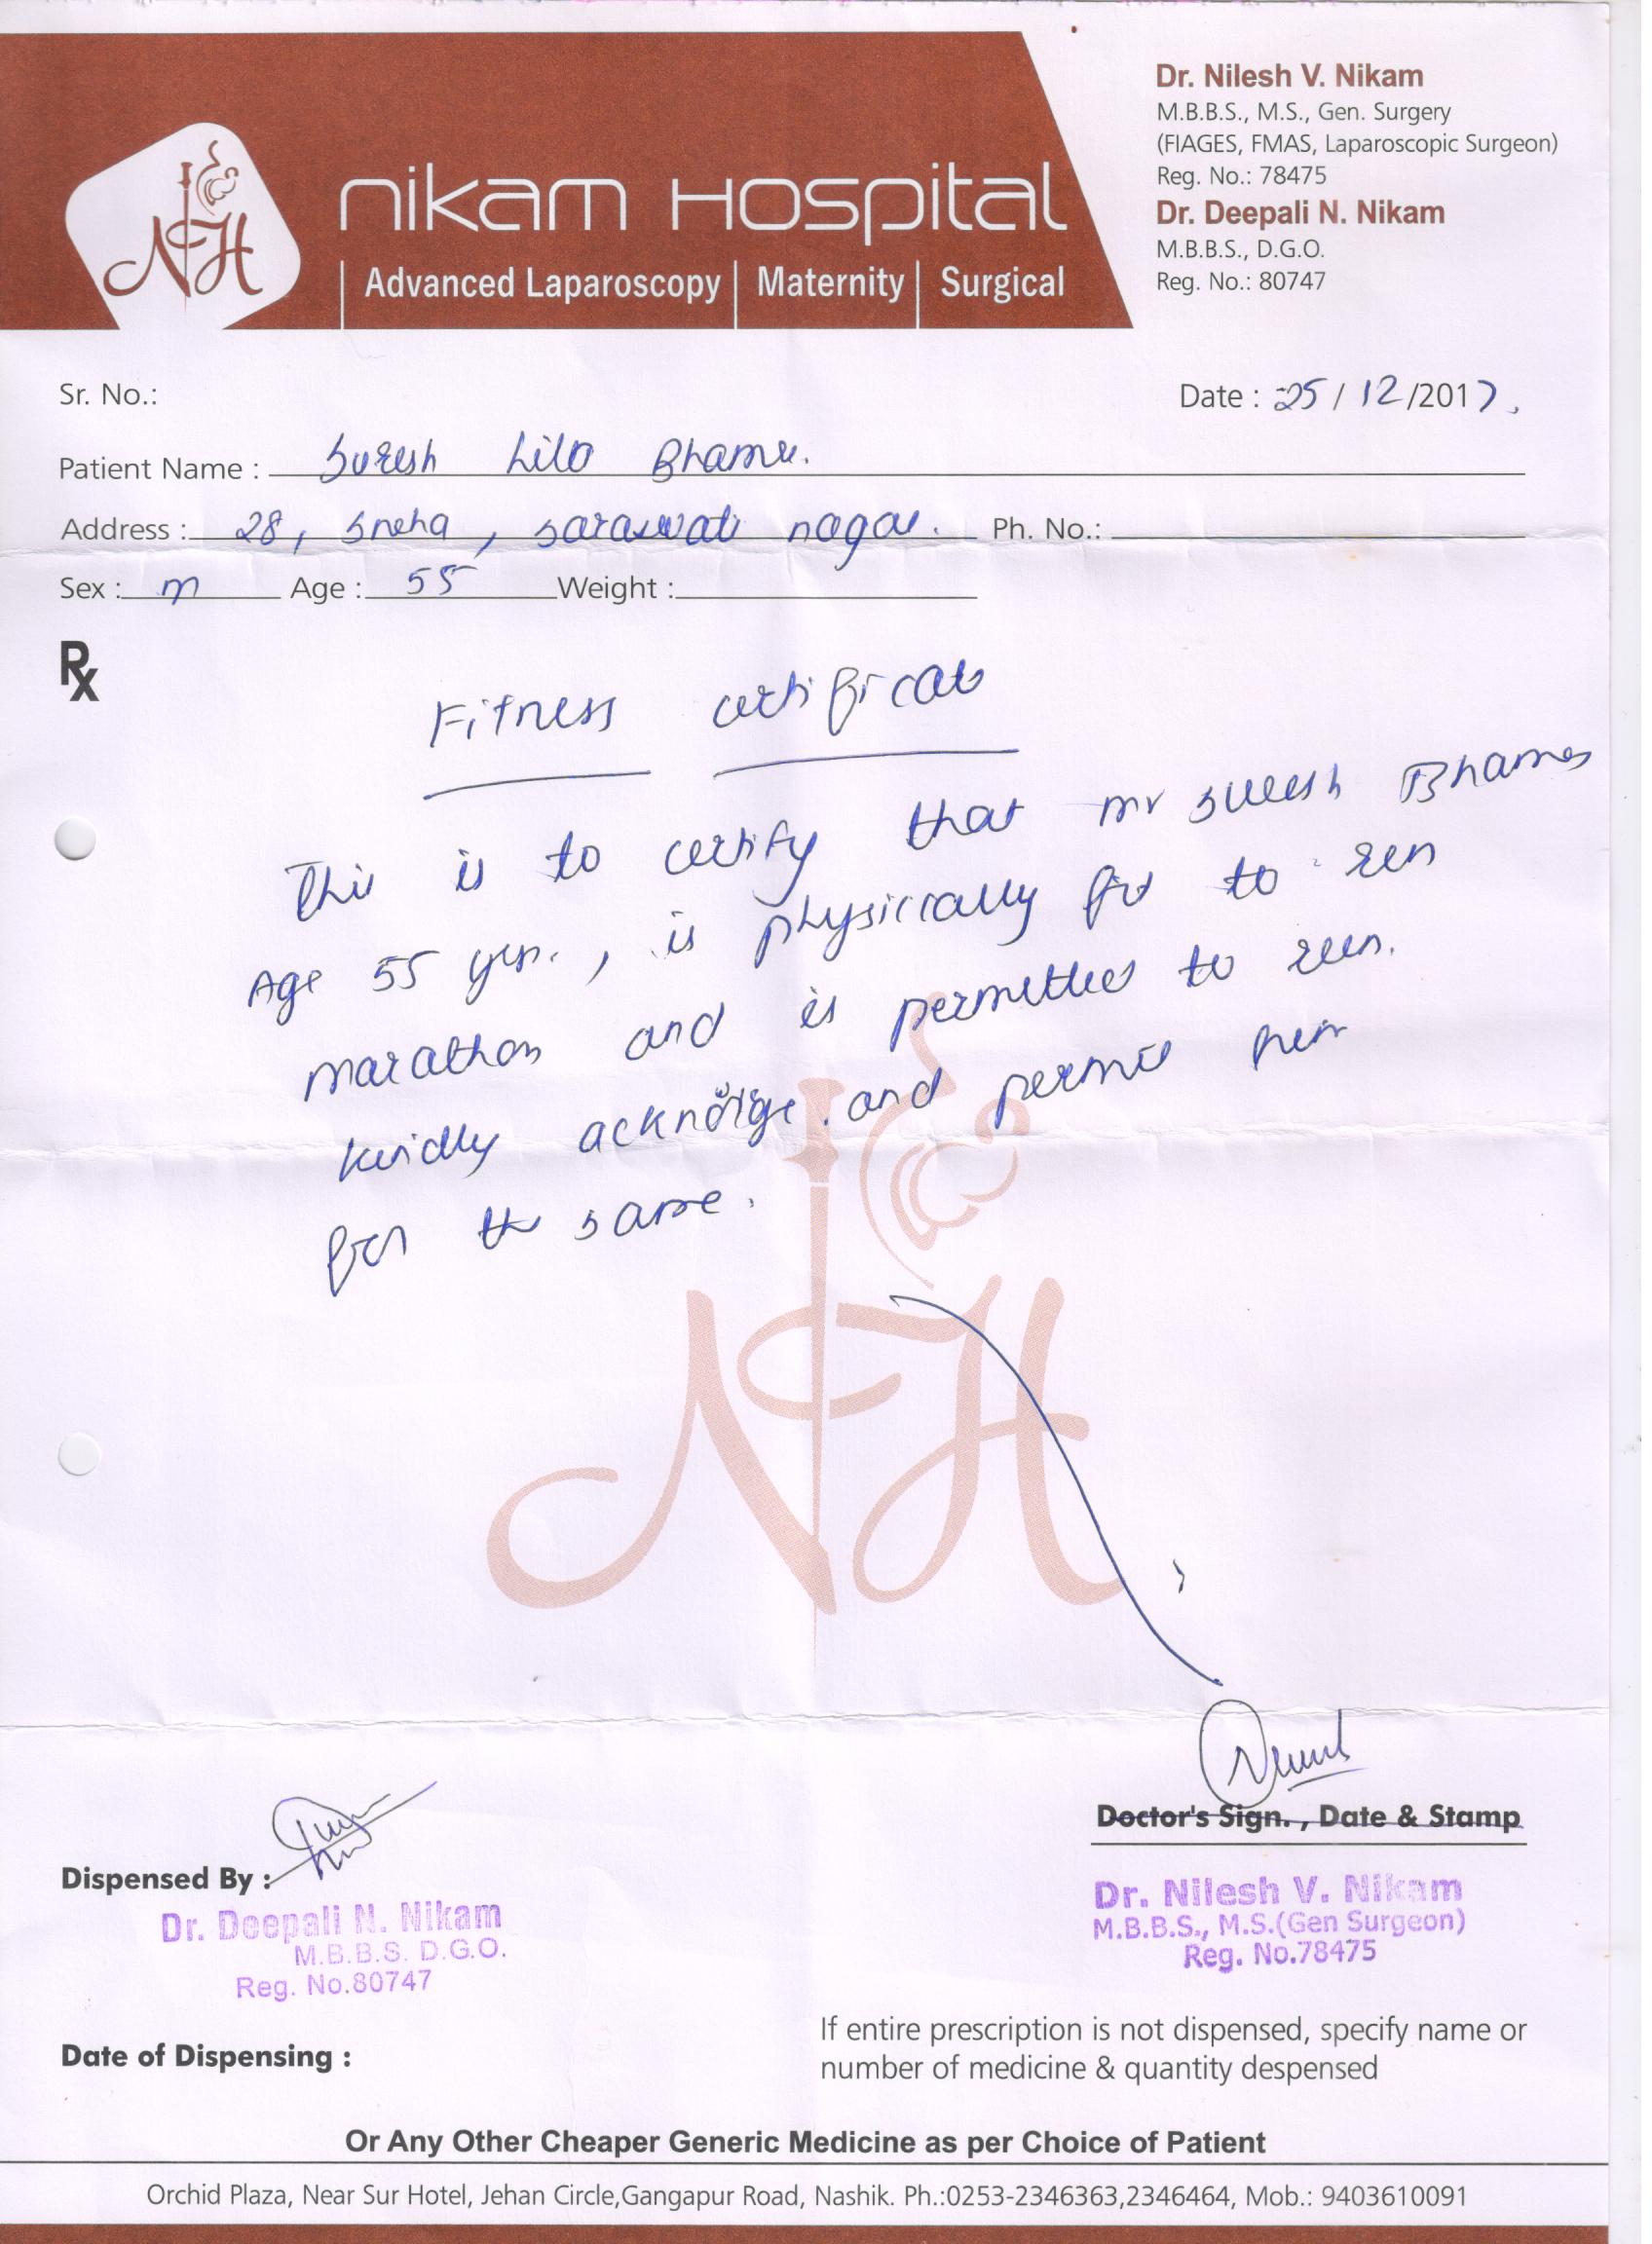 Dr. Nilesh V. Nikam
M.B.B.S., M.S., Gen. Surgery
(FIAGES, FMAS, Laparoscopic Surgeon)
Reg. No.: 78475
Dr. Deepali N. Nikam
M.B.B.S., D.G.O.
Reg. No.: 80747
NH
nikam Hospital
Advanced Laparoscopy | Maternity | Surgical
Sr. No.:
Date : 25/12/2017.
Patient Name : Suresh Lilo
Address : 28, Sneha, Saraswati nagar. Ph. No.:
Sex : m Age : 55 Weight :
Rx
Fitness certificate
This is to certify that mr Suresh
Age 55 yrs., is physically fit to run
marathon and is permitted to run.
kindly and permit him
for the same.
NH
Doctor's Sign. , Date & Stamp
Dispensed By :
Dr. Nilesh V. Nikam
M.B.B.S., M.S.(Gen Surgeon)
Reg. No.78475
Dr. Deepali N. Nikam
M.B.B.S. D.G.O.
Reg. No.80747
If entire prescription is not dispensed, specify name or
number of medicine & quantity despensed
Date of Dispensing :
Or Any Other Cheaper Generic Medicine as per Choice of Patient
Orchid Plaza, Near Sur Hotel, Jehan Circle,Gangapur Road, Nashik. Ph.:0253-2346363,2346464, Mob.: 9403610091